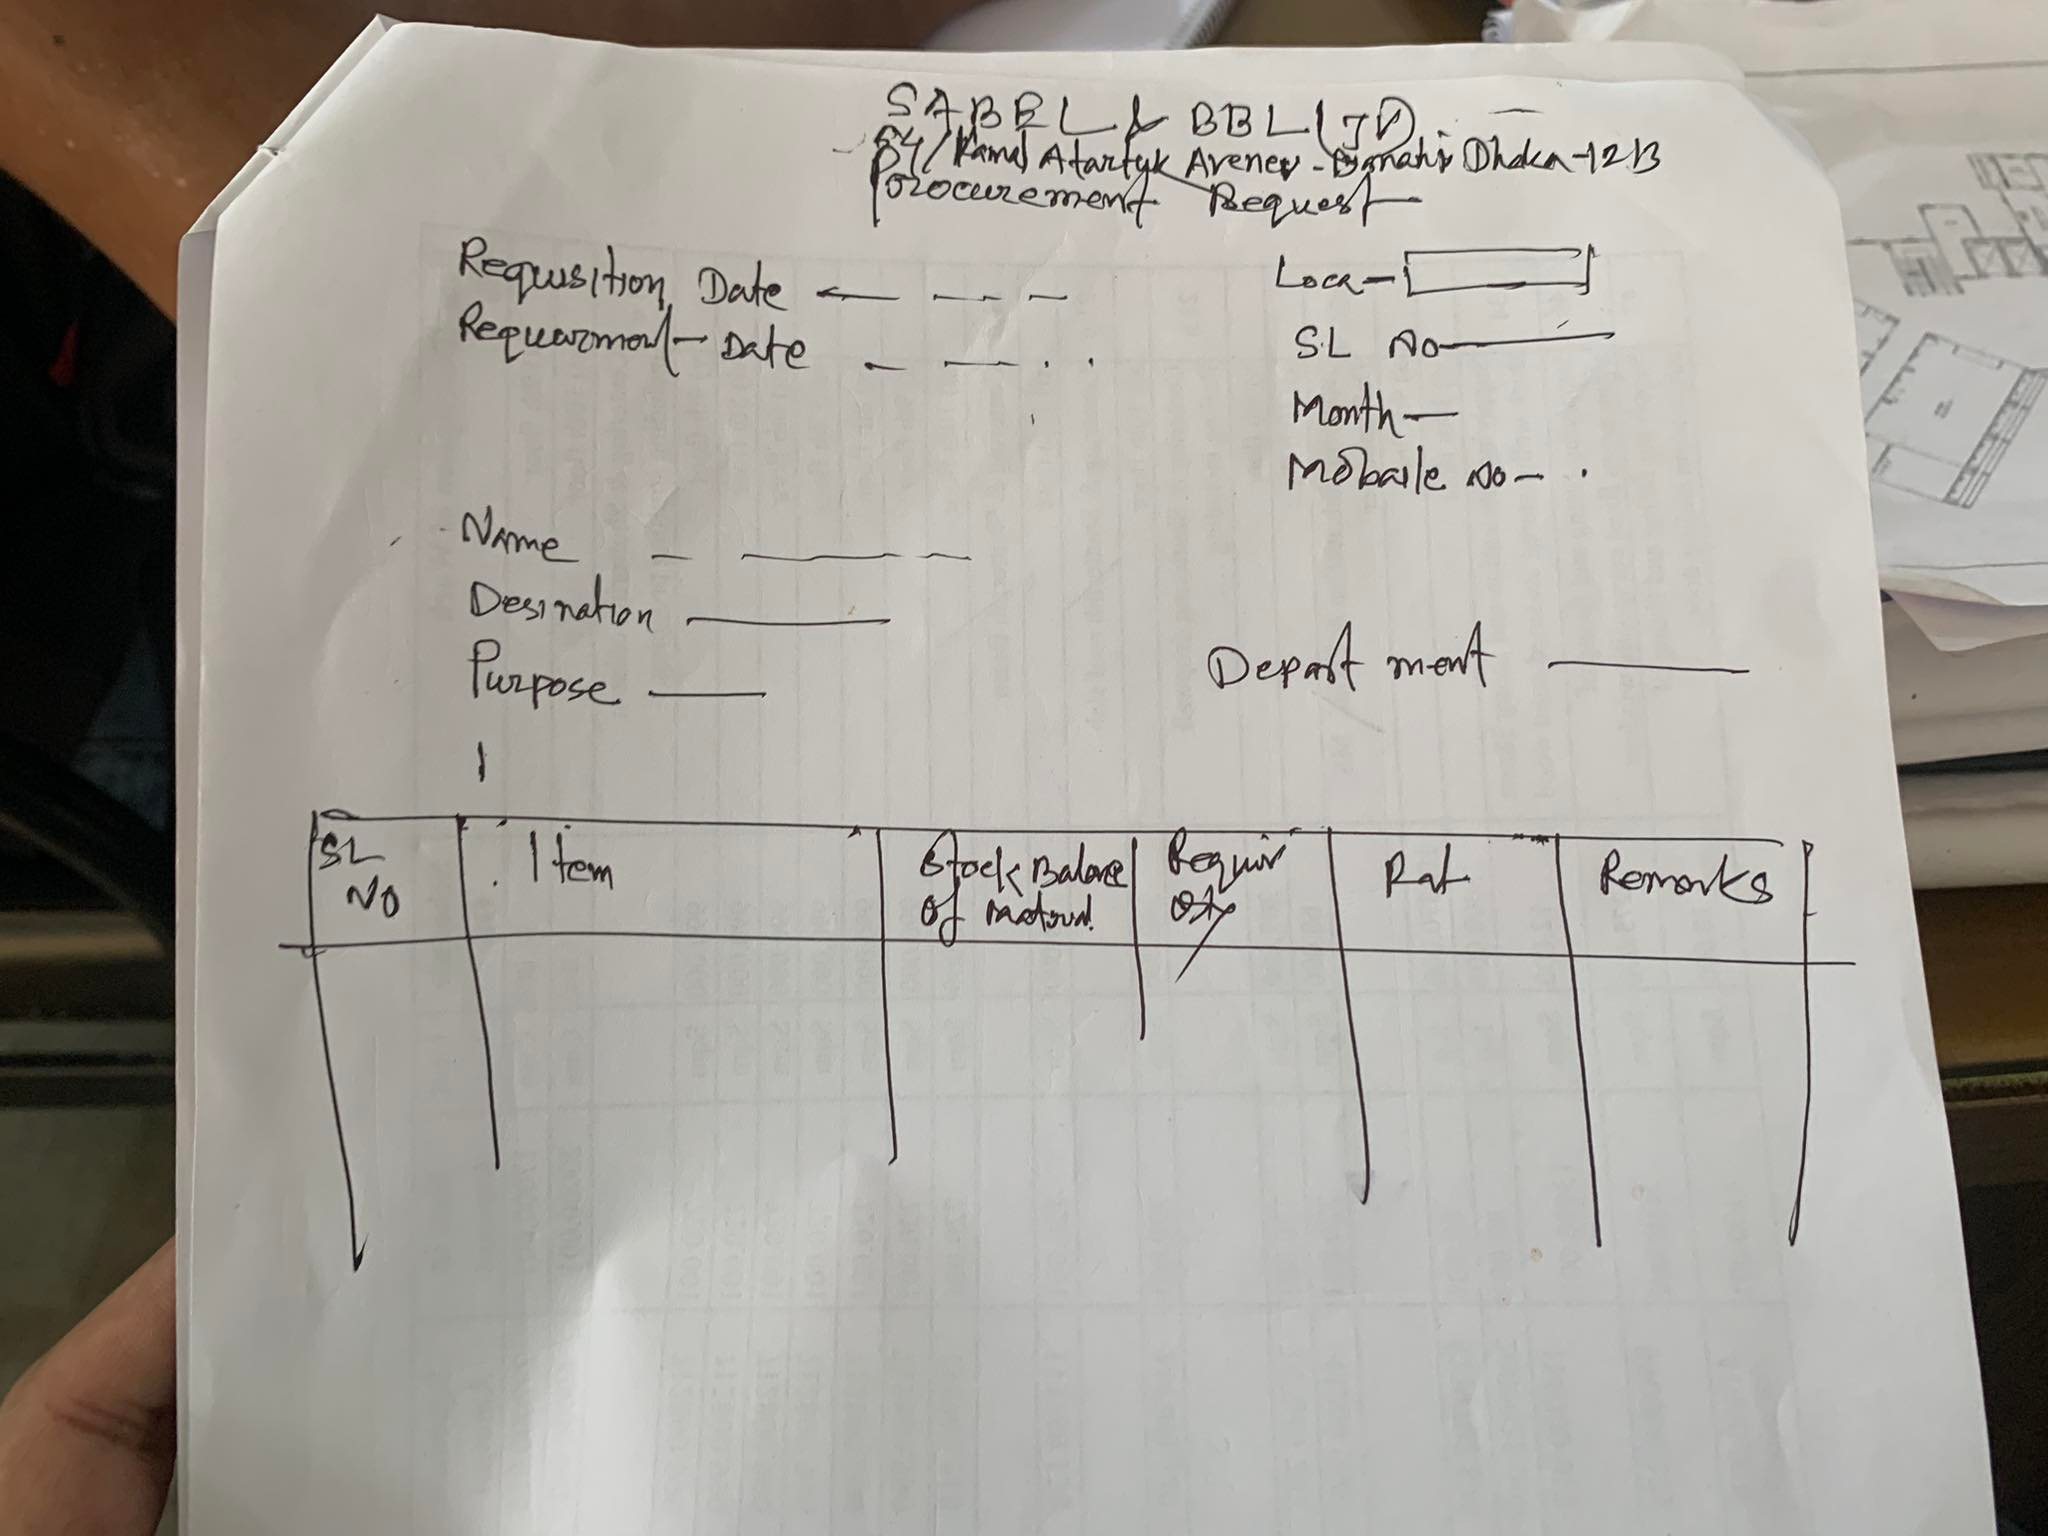 SABBL & BBL (JV)
54/Kamal Atartyk Avenev - Banani Dhaka-1213
Porocurement Request
Requsition Date
Loca-
Requarment Date
SL No
Month
Mobaile No
Name
Desination
Purpose
Department
SL No
Item
Stock Balance of Material
Requir Qty
Rat
Remarks